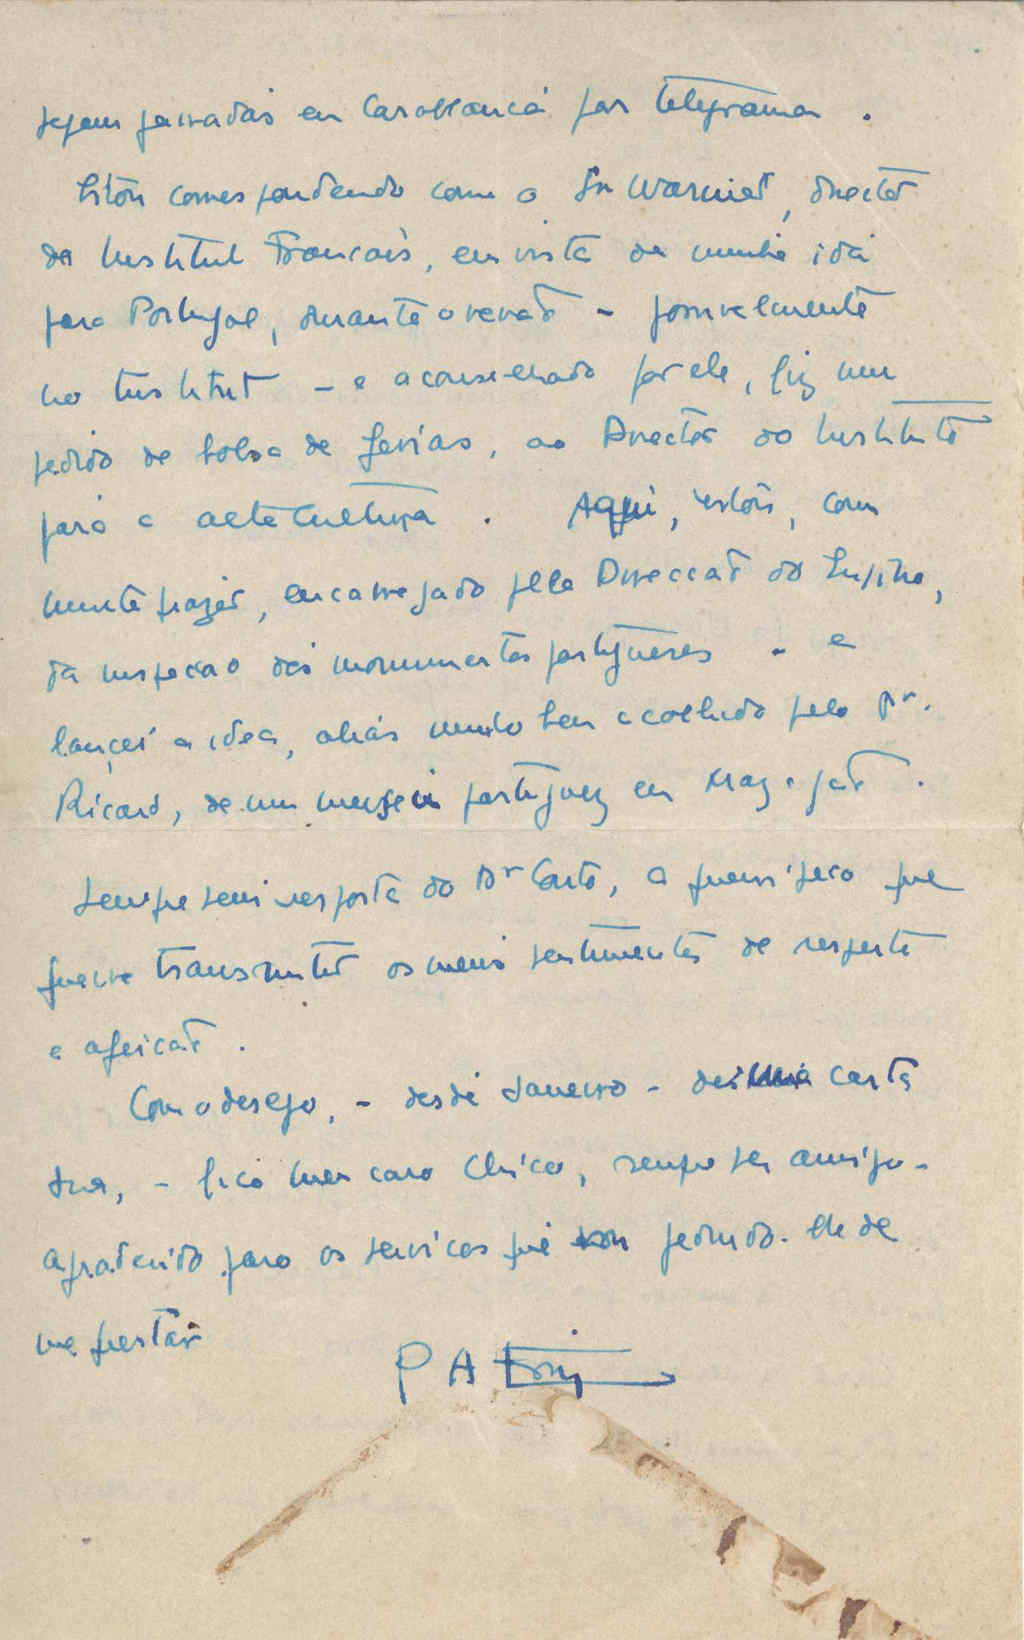 sejam passadas em Casablanca por telegrama.
Estou correspondendo com o Sr Warnier, director
do Institut Français, em vista da minha ida
para Portugal, durante o verão - possivelmente
no Institut - e aconselhado por ele, fiz um
pedido de bolsa de ferias, ao Director do Instituto
para a alta Cultura. Aqui, estou, com
muito prazer, encarregado pela Direccão do
da inspecão dos monumentos portugueses - e
lançei a idea, aliás muito bem acolhida pelo Dr.
Ricard, de um museu portuguez em Mazagão.
Sempre sem resposta do Dr Couto, a quem peço que
queira transmitir os meus sentimentos de respeito
e afeicão.
Com o desejo, - desde Janeiro - de uma carta
sua, - fico meu caro Chico, sempre seu amigo -
agradecido para os servicos que pedindo-lhe de
me prestar
P A